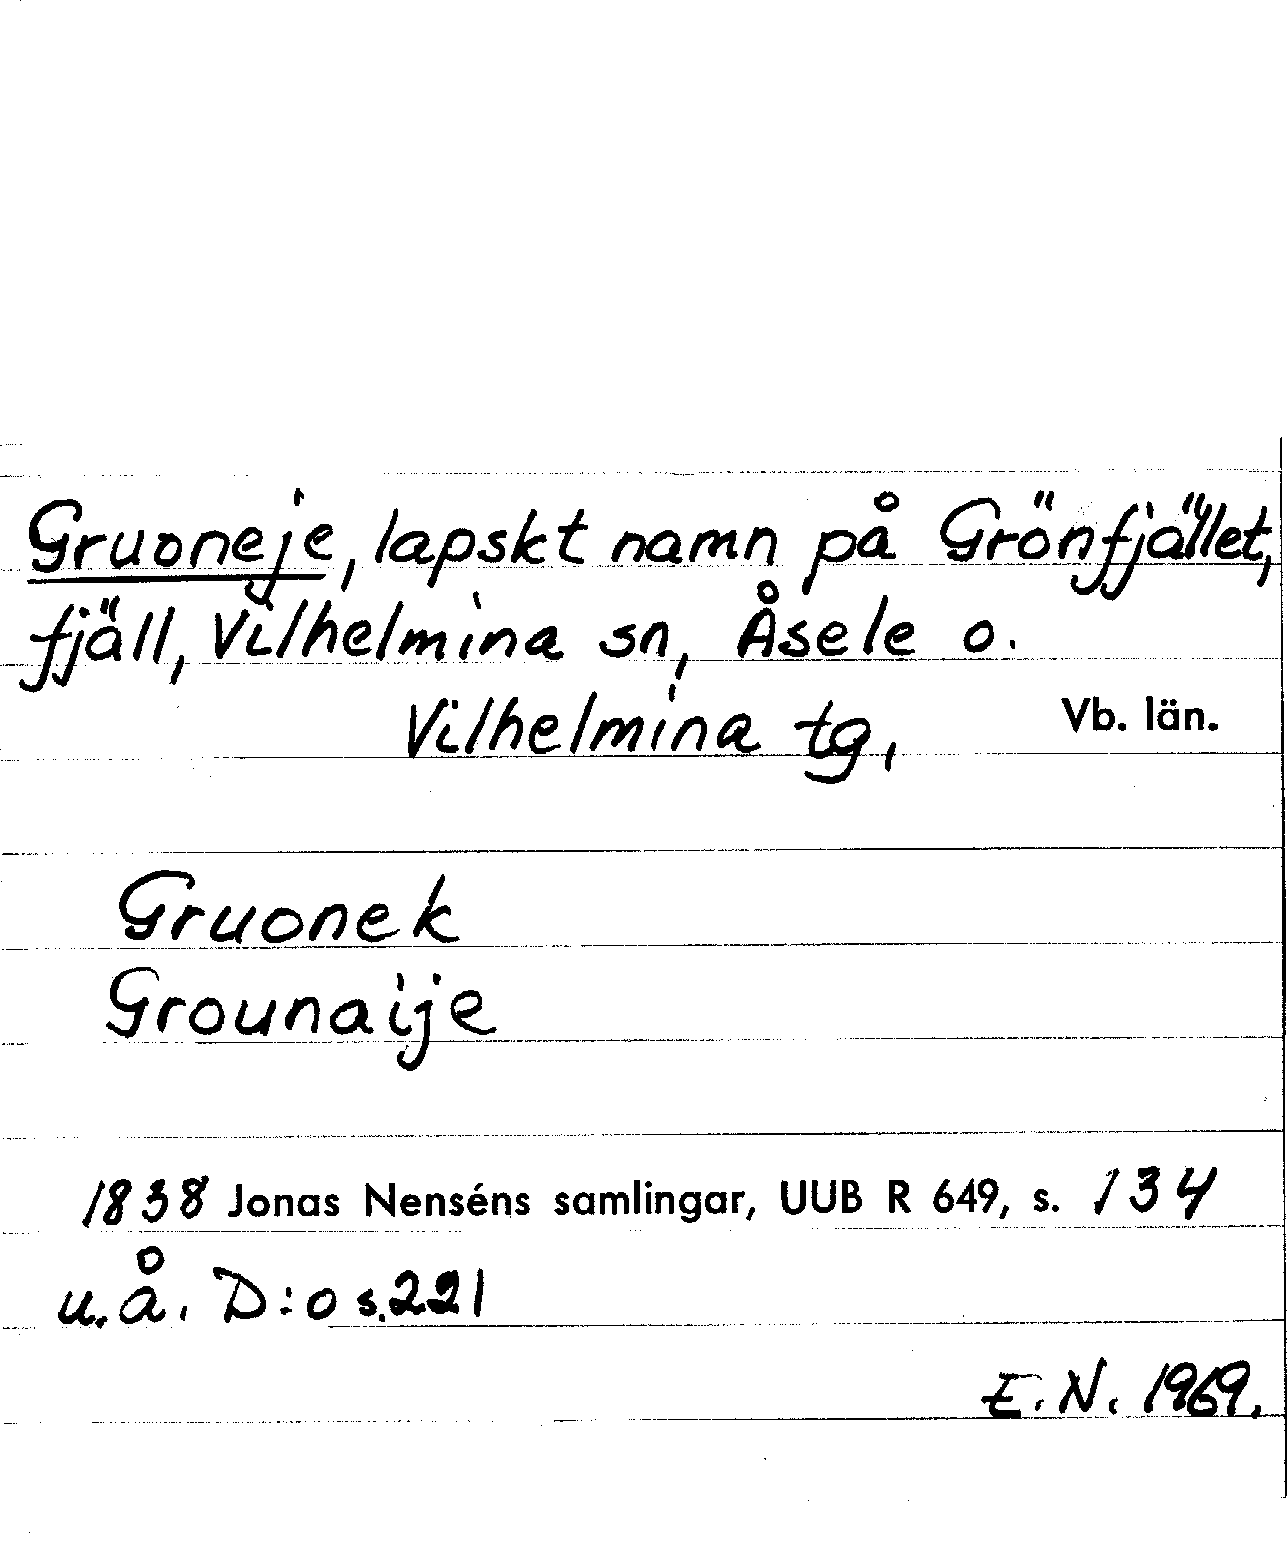 Gruoneje, lapskt namn på Grönfjället,
fjäll, Vilhelmina sn, Åsele o.
Vilhelmina tg, Vb. län.
Gruonek
Grounaije
1838 Jonas Nenséns samlingar, UUB R 649, s. 134
u.å. D:o s.221
E.N. 1969.